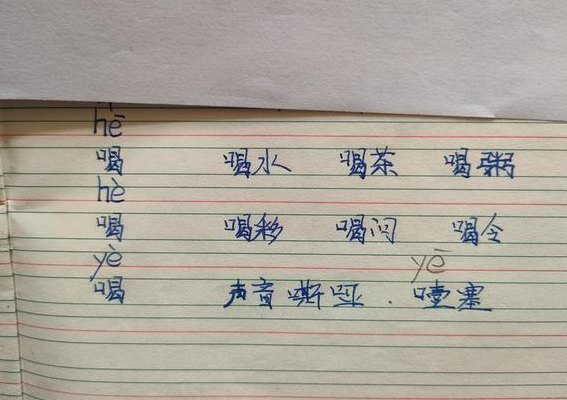 hē
喝 喝水 喝茶 喝粥
hè
喝 喝彩 喝问 喝令
yè yē
喝 声音嘶哑. 噎塞